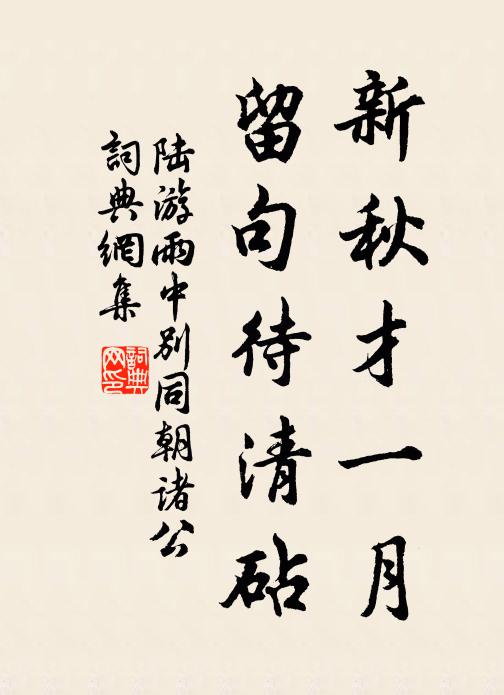 新秋才一月
留句待清砧
陆游雨中別同朝诸公
詞典網集
詞典网印